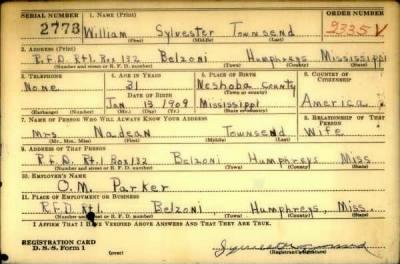 SERIAL NUMBER 1. NAME (Print) ORDER NUMBER
2773 William Sylvester Townsend 2335 V
(First) (Middle) (Last)
2. ADDRESS (Print)
R.F.D. Rt1. Box 132 Belzoni Humphreys Mississippi
(Number and street or R. F. D. number) (Town) (County) (State)
3. TELEPHONE 4. AGE IN YEARS 5. PLACE OF BIRTH 6. COUNTRY OF CITIZENSHIP
None 31 Neshoba County
DATE OF BIRTH (Town or county)
Jan 13 1909 Mississippi America
(Exchange) (Number) (Mo.) (Day) (Yr.) (State or country)
7. NAME OF PERSON WHO WILL ALWAYS KNOW YOUR ADDRESS 8. RELATIONSHIP OF THAT PERSON
Mrs Nadean Townsend Wife
(Mr., Mrs., Miss) (First) (Middle) (Last)
9. ADDRESS OF THAT PERSON
R.F.D. Rt.1 Box 132 Belzoni Humphreys Miss
(Number and street or R. F. D. number) (Town) (County) (State)
10. EMPLOYER'S NAME
O.M. Parker
11. PLACE OF EMPLOYMENT OR BUSINESS
R.F.D. Rt1. Belzoni, Humphreys, Miss.
(Number and street or R. F. D. number) (Town) (County) (State)
I AFFIRM THAT I HAVE VERIFIED ABOVE ANSWERS AND THAT THEY ARE TRUE.
REGISTRATION CARD
D. S. S. Form 1 (Registrant's signature)